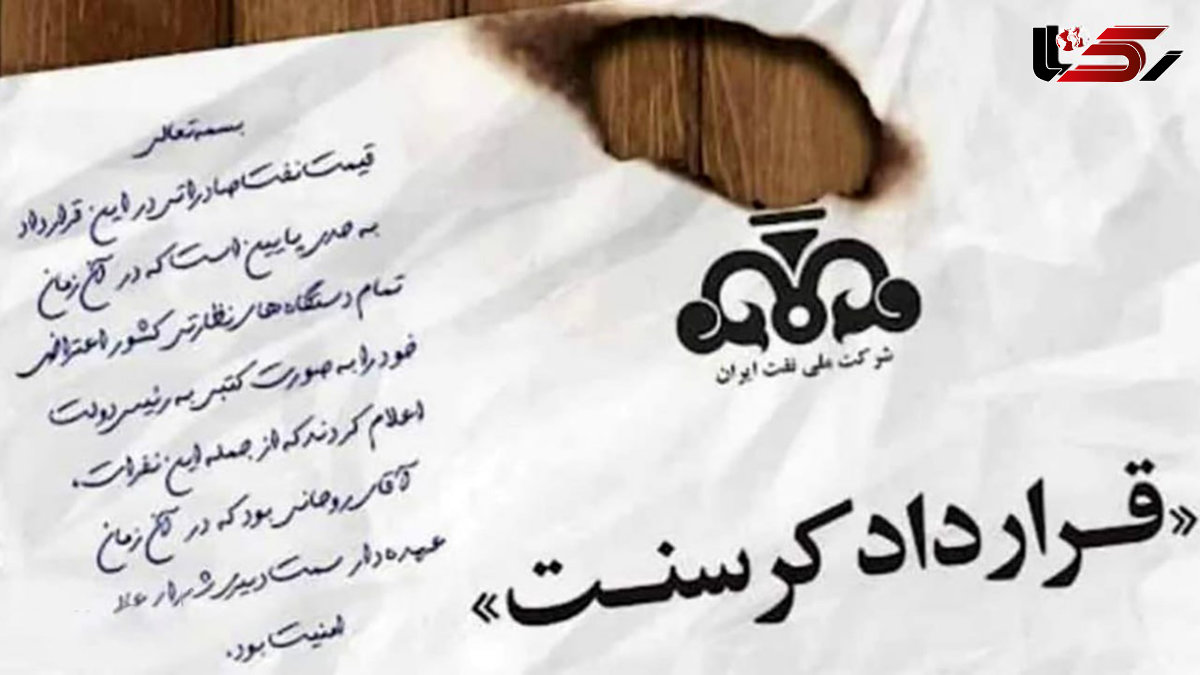 رکنا
بسمه تعالی
قیمت نفت صادراتی در این قرارداد
به حدی پایین است که در آن زمان
تمام دستگاه های نظارتی کشور اعتراض
خود را به صورت کتبی به رئیس دولت
اعلام کردند که از جمله این نفرات،
آقای روحانی بود که در آن زمان
عهده دار سمت دبیری شورای عالی
امنیت بود.
شرکت ملی نفت ایران
«قرارداد کرسنت»